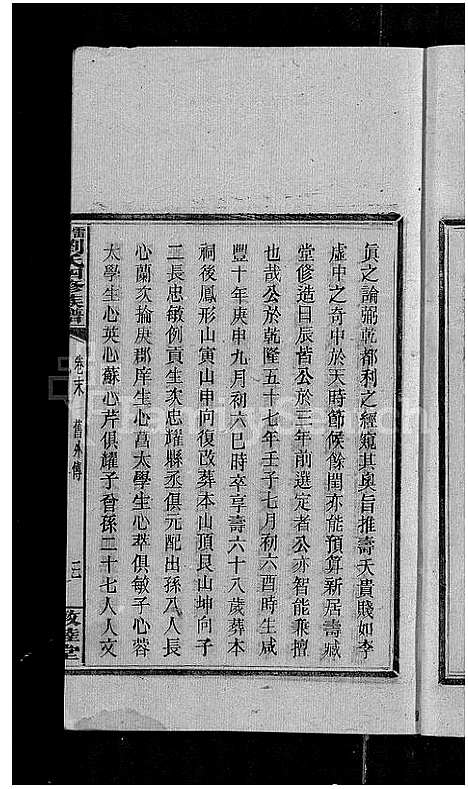 貞之論鄧乾都利之經窺其奥旨推壽夭貴賤如李
虛中之奇中於天時節候餘閏亦能預算新居壽藏
堂修造日辰皆公於三年前選定者公亦智能兼擅
也哉公於乾隆五十七年壬子七月初六酉時生咸
豐十年庚申九月初六巳時卒享壽六十八歲葬本
祠後鳳形山寅山申向復改葬本山頂艮山坤向子
二長忠敏例貢生次忠耀縣丞俱元配出孫八人長
心蘭次掄庚郡庠生心菖太學生心萃俱敏子心蓉
太學生心英心蘇心芹俱耀子曾孫二十七人人文
劉氏四修族譜
卷末
舊外傳
三
敦睦堂
FamilySearch